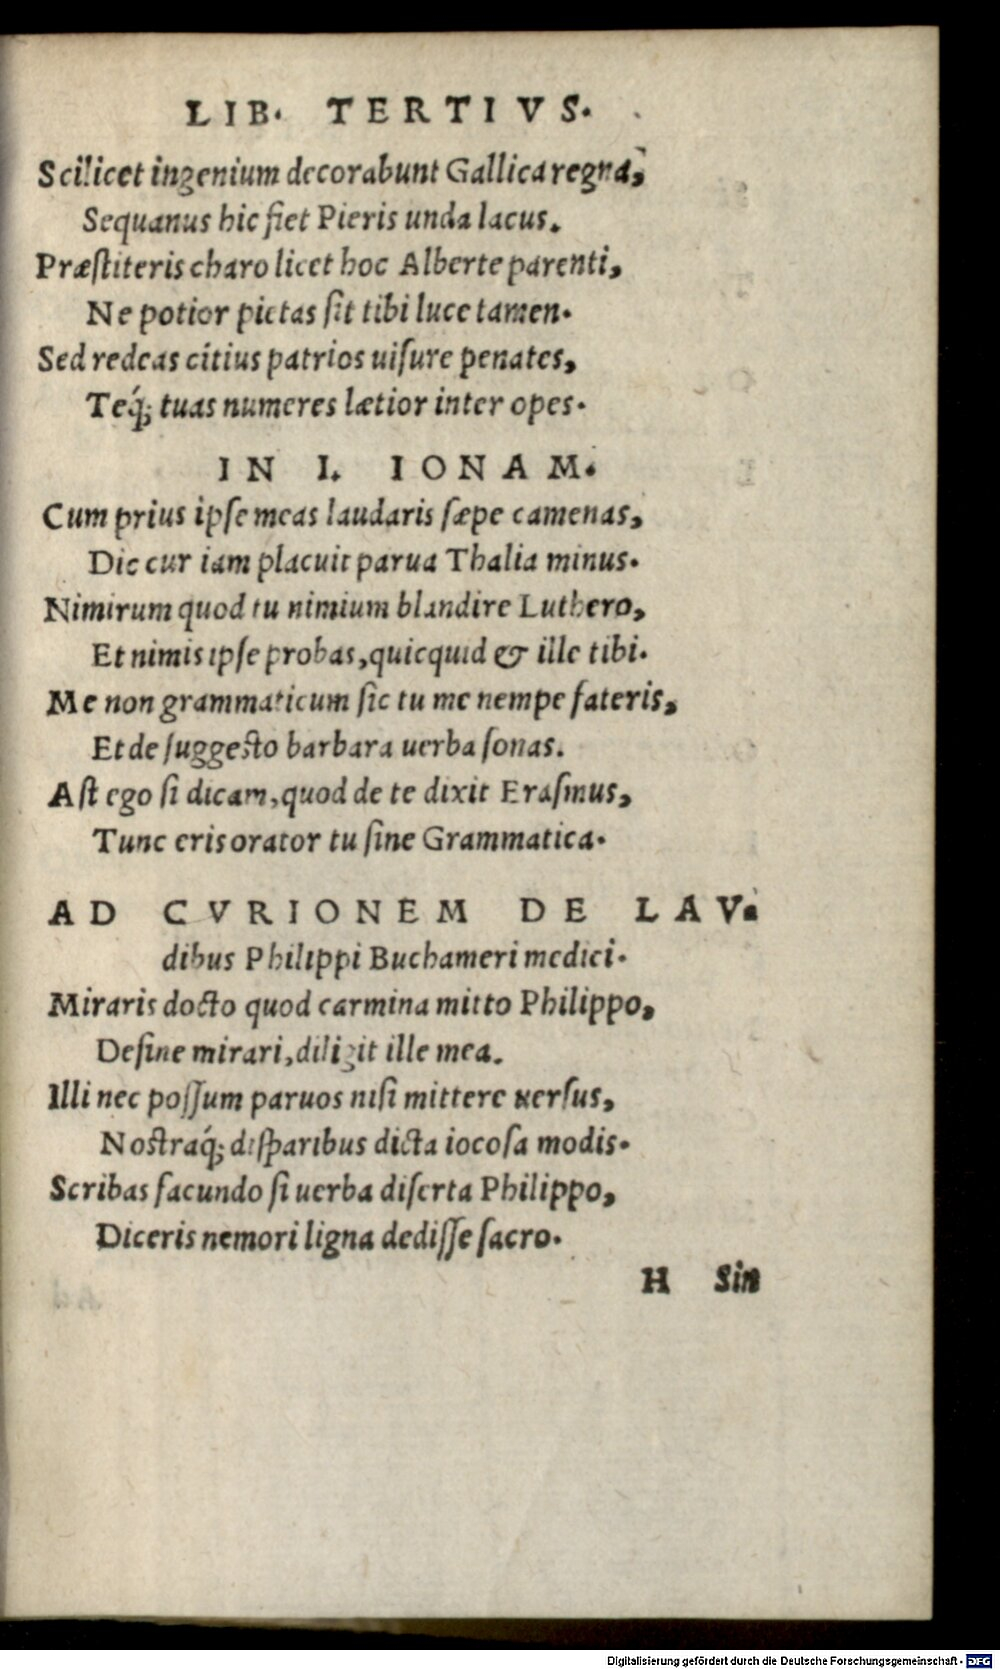 LIB. TERTIVS.
Scilicet ingenium decorabunt Gallica regna,
Sequanus hic fiet Pieris unda lacus.
Præſtiteris charo licet hoc Alberte parenti,
Ne potior pietas ſit tibi luce tamen.
Sed redeas citius patrios uiſure penates,
Teq́; tuas numeres lætior inter opes.
IN I. IONAM.
Cum prius ipſe meas laudaris ſæpe camenas,
Dic cur iam placuit parua Thalia minus.
Nimirum quod tu nimium blandire Luthero,
Et nimis ipſe probas, quicquid & ille tibi.
Me non grammaticum ſic tu me nempe fateris,
Et de ſuggeſto barbara uerba ſonas.
Aſt ego ſi dicam, quod de te dixit Eraſmus,
Tunc eris orator tu ſine Grammatica.
AD CVRIONEM DE LAV⸗
dibus Philippi Buchameri medici.
Miraris docto quod carmina mitto Philippo,
Deſine mirari, diligit ille mea.
Illi nec poſſum paruos niſi mittere uerſus,
Noſtraq́; diſparibus dicta iocoſa modis.
Scribas facundo ſi uerba diſerta Philippo,
Diceris nemori ligna dediſſe ſacro.
H Sin
Digitalisierung gefördert durch die Deutsche Forschungsgemeinschaft - DFG